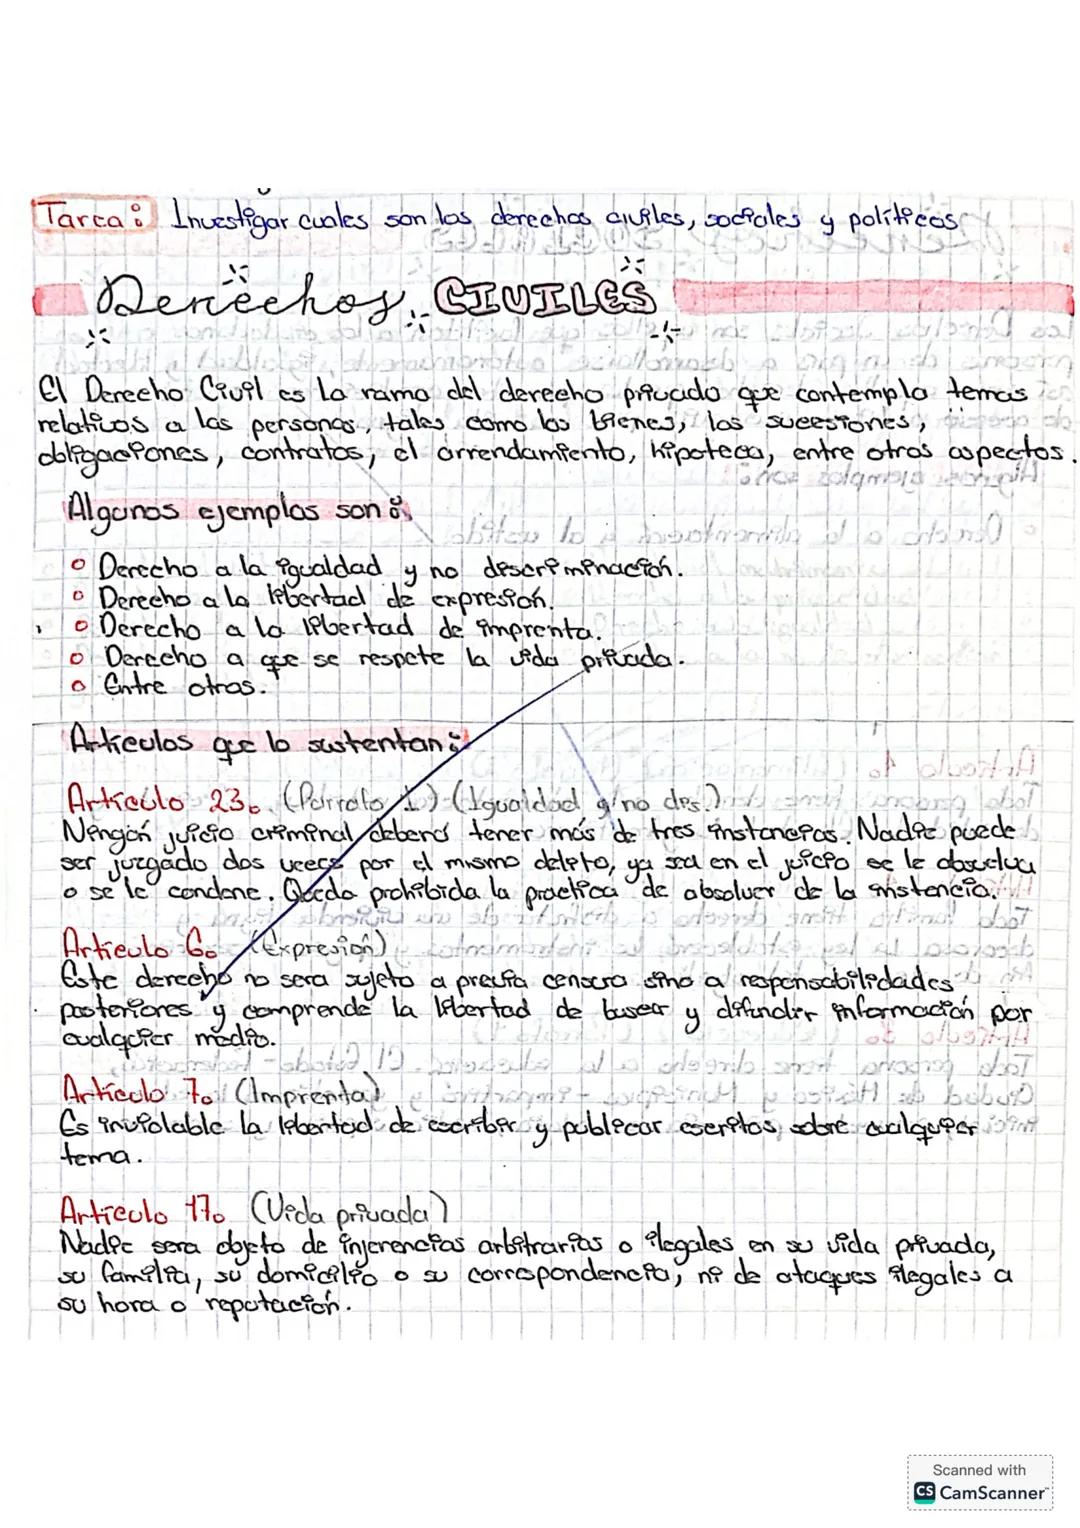 Tarea: Investigar cuales son los derechos civiles, sociales y políticos
Derechos CIVILES
El Derecho Civil es la rama del derecho privado que contempla temas
relativos a las personas, tales como los bienes, las sucesiones,
obligaciones, contratos, el arrendamiento, hipoteca, entre otros aspectos.
Algunos ejemplos son:
o Derecho a la igualdad y no discriminación.
o Derecho a la libertad de expresión.
o Derecho a la libertad de imprenta.
o Derecho a que se respete la vida privada.
o Entre otros.
Artículos que lo sustentan:
Artículo 23o (Párrafo 1) (Igualdad y no des.)
Ningún juicio criminal deberá tener más de tres instancias. Nadie puede
ser juzgado dos veces por el mismo delito, ya sea en el juicio se le absuelva
o se le condene. Queda prohibida la practica de absolver de la instancia.
Artículo 6o (Expresión)
Este derecho no sera sujeto a previa censura sino a responsabilidades
posteriores y comprende la libertad de buscar y difundir información por
cualquier medio.
Artículo 7o (Imprenta)
Es inviolable la libertad de escribir y publicar escritos sobre cualquier
tema.
Artículo 17o (Vida privada)
Nadie sera objeto de injerencias arbitrarias o ilegales en su vida privada,
su familia, su domicilio o su correspondencia, ni de ataques ilegales a
su hora o reputación.
Scanned with
CS CamScanner